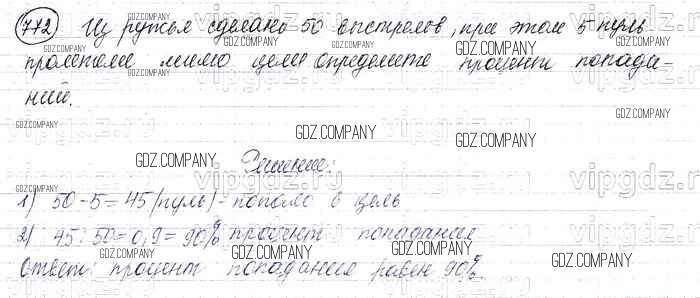 772 Из ружья сделано 50 выстрелов, при этом 5 пуль
пролетели мимо цели Определите проценты попада-
ний.
Решение:
1) 50-5=45 (пуль)-попало в цель
2) 45:50=0,9=90% процент попадание
Ответ: процент попадание равен 90%.
GDZ.COMPANY
vipgdz.ru